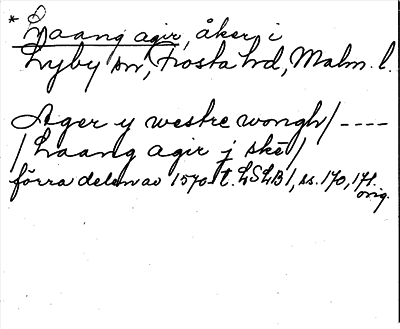 * Laang agir, åker i
Lyby sn, Frosta hd, Malm. l.
Ager y westre wongh / ----
/ Laang agir j skē /
förra delen av 1570-t. LSLB 1, ss. 170, 171.
orig.